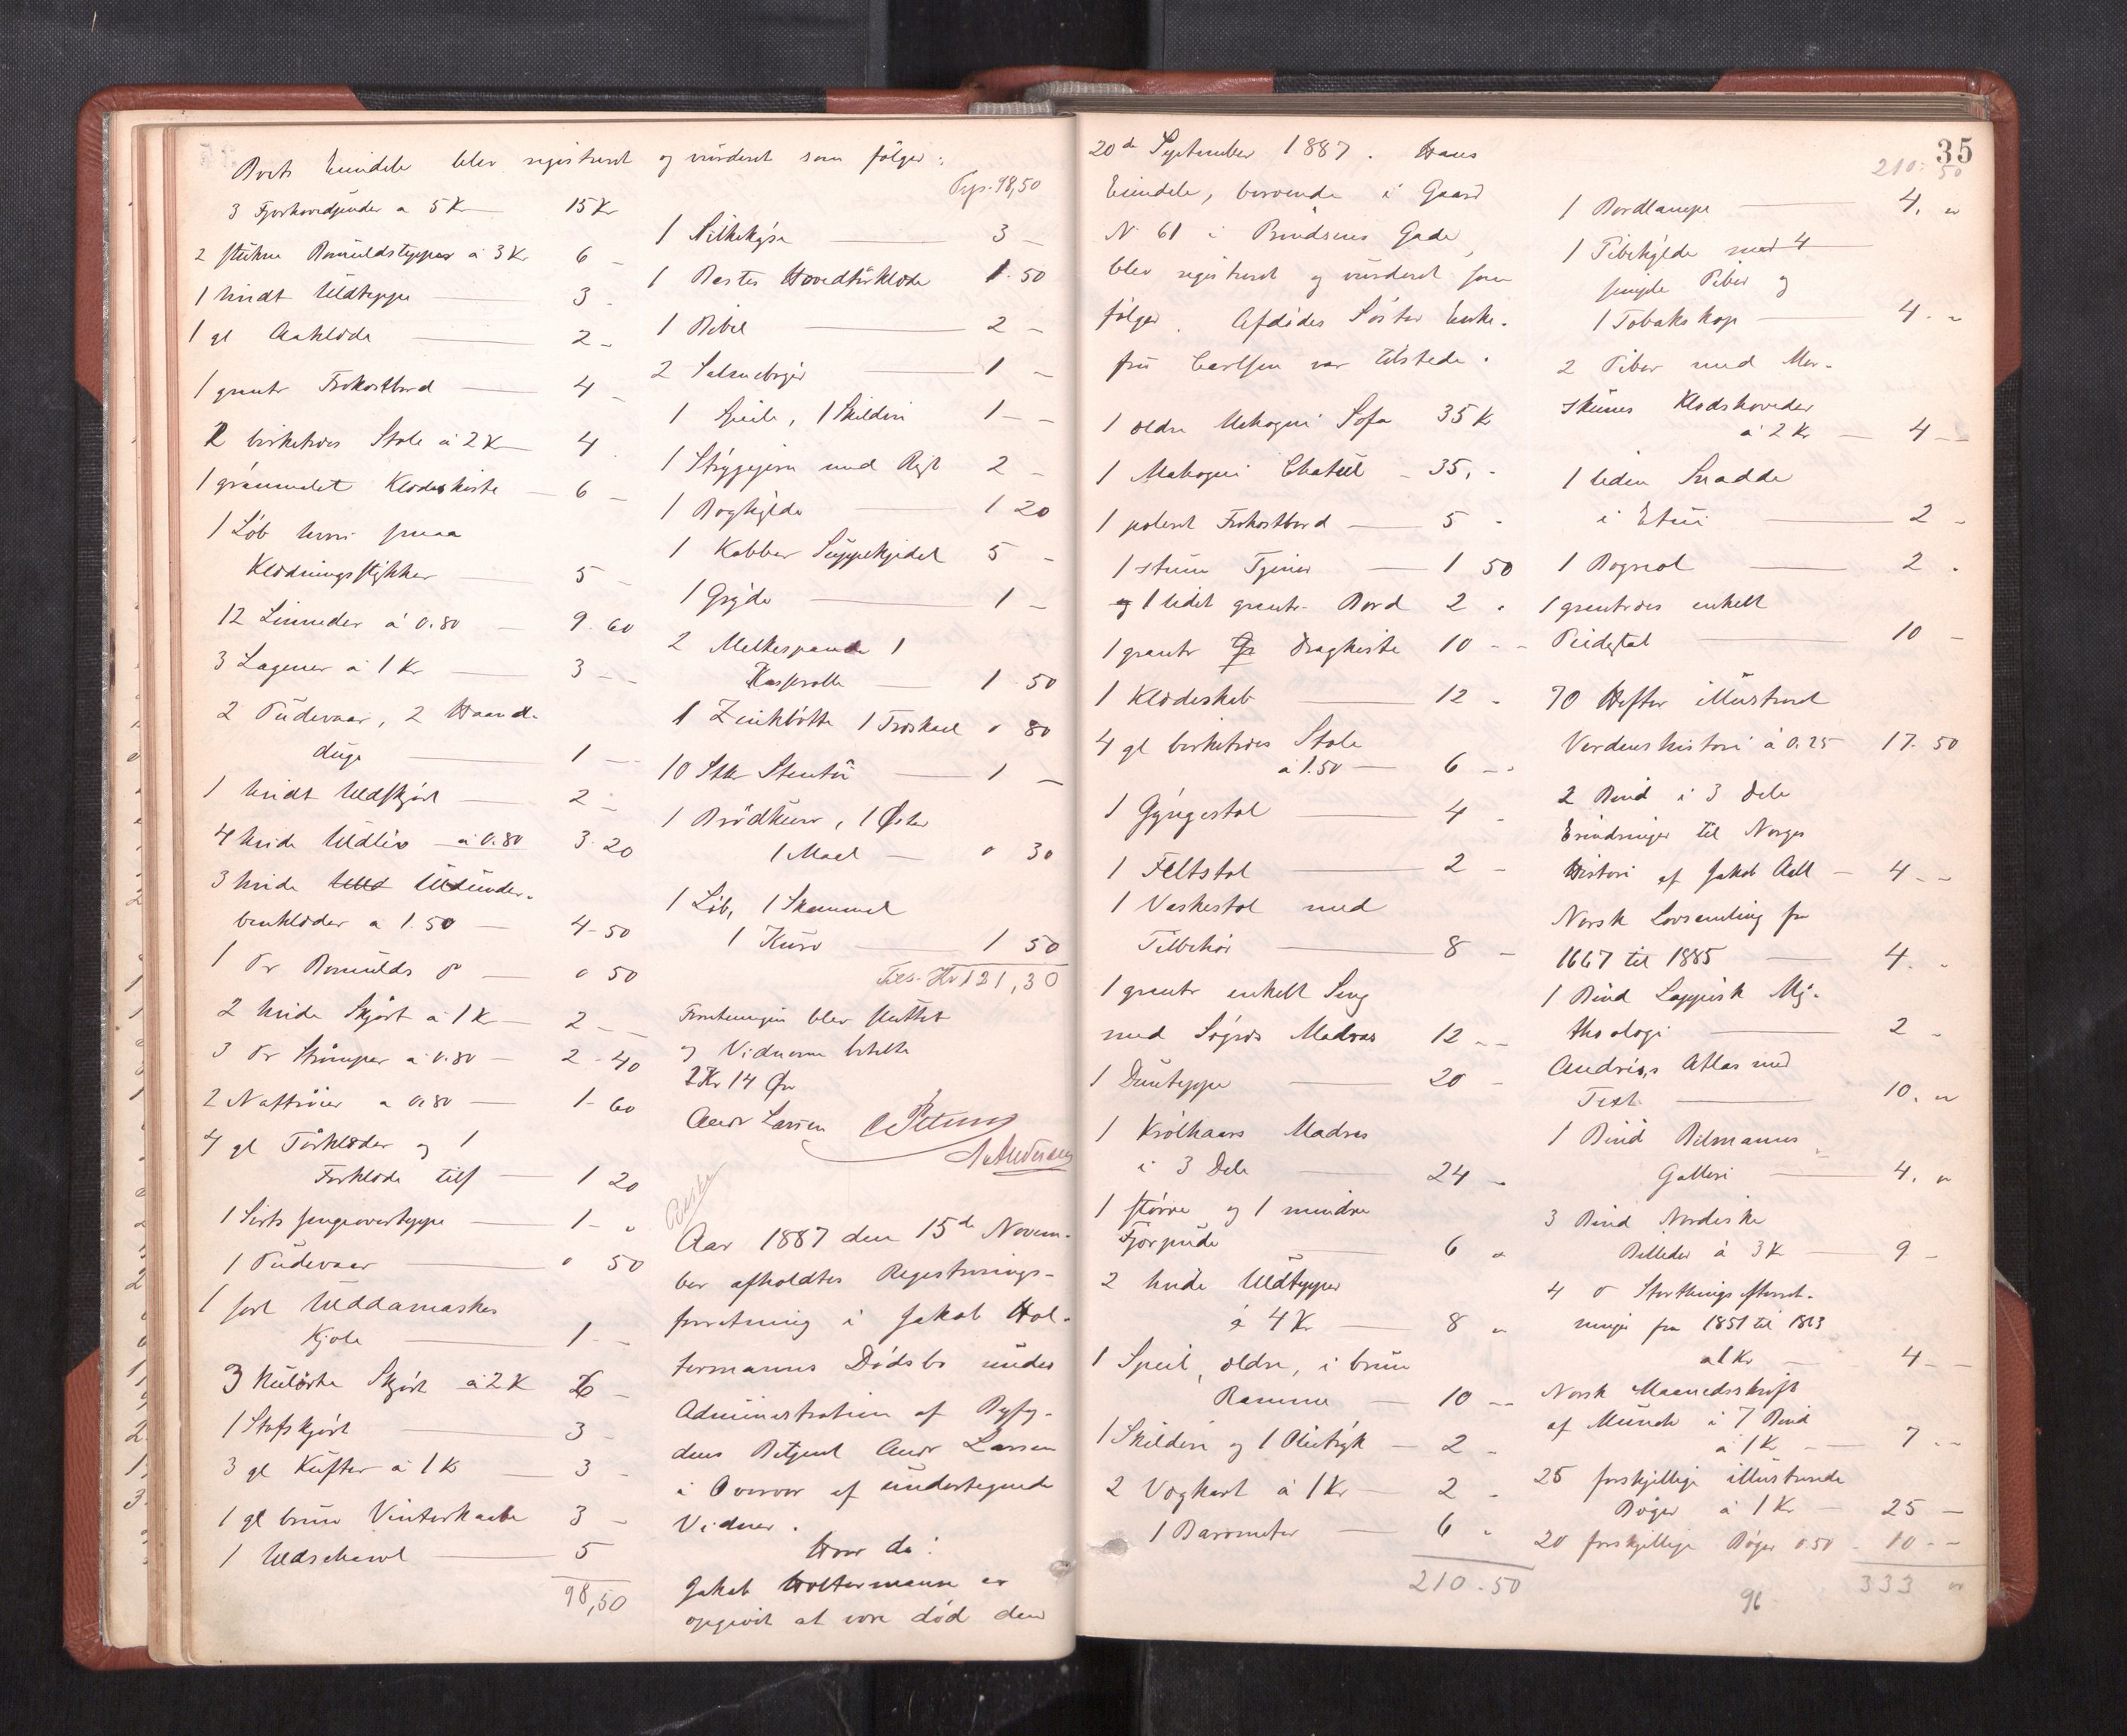 Boets Eiendele blev registreret og vurderet som følger:
3 Fjærhovedpuder a 5 Kr 15 Kr
2 stukne Bomuldstepper á 3 Kr 6 -
1 hvidt Uldteppe 3 -
1 gl Aaklæde 2 -
1 grantr Frokostbord 4 -
2 birketræes Stole á 2 Kr 4 -
1 grønmalet Klædeskiste 6 -
1 Løb hvori smaa
Klædningsstykker 5 -
12 Linneder á 0.80 9.60
3 Lagener á 1 Kr 3 - -
2 Pudevaar, 2 Haand-
duge 1 - -
1 hvidt Uldskjørt 2 -
4 hvide Uldliv á 0.80 3.20
3 hvide Uldunder-
benklæder a 1.50 4-50
1 Pr Bomulds do 0 50
2 hvide Skjørt á 1 K 2 - -
3 Pr Strømper á 0.80 2-40
2 Nattrøier a 0.80 1-60
4 gl Tørklæder og 1
Forklæde tils 1 20
1 Sirts sengeoverteppe 1 - "
1 Pudevaar 0 50
1 sort Uldamaskes
Kjole 1 - -
3 kulørte Skjørt á 2 K 6 -
1 Stofskjørt 3 -
3 gl Kufter á 1 Kr 3 -
1 gl brun Vinterkaabe 3 -
1 Uldschawl 5
98,50
Trsp. 98,50
1 Silkekyse 3 -
1 Bastes Hovedtørklæde 1.50
1 Bibel 2 -
2 Salmebøger 1 -
1 Speile, 1 Skilderi 1 - -
1 Strygejern med Rist 2 -
1 Boghylde 1 20
1 Kobber Suppekjedel 5 -
1 Gryde 1 -
2 Melkespande 1
Kasserolle 1 50
1 Zinkbøtte 1 Træskaal 0 80
10 Stkr Stentøi 1 -
1 Brødkurv, 1 Øse
1 Maal 0 30
1 Løb, 1 Skammel
1 Kurv 1 50
Tils. Kr 121,30
Forretningen blev sluttet
og Vidnerne betalte
2 Kr 14 Øre
Andr Larsen
Aar 1887 den 15de Novem-
ber afholdtes Registrerings-
forretning i Jakob Hol-
termanns Dødsbo under
Administration af Byfog-
dens Betjent Andr Larsen
i Overvær af undertegnede
Vidner.
Hvor da:
Jakob Holtermann er
opgivet at være død den
35
20de September 1887. Hans
Eiendele, beroende i Gaard
N. 61 i Brødrenes Gade
blev registreret og vurderet som
følger. Afdødes Søster Enke-
fru Carlsen var tilstede.
1 ældre Mahogni Sofa 35 Kr
1 Mahogni Chatul - 35, -
1 poleret Frokostbord 5 -
1 stum Tjener 1 50
og 1 lidet grantr. Bord 2 "
1 grantr Dragkiste 10 - -
1 Klædeskab 12 -
4 gl birketræes Stole
á 1.50 6 - -
1 Gyngestol 4 -
1 Feltstol 2 -
1 Vaskestol med
Tilbehør 8 -
1 grantr enkelt Seng
med Søgræs Madras 12 - -
1 Dunteppe 20 -
1 Krølhaars Madras
i 3 Dele 24 -
1 større og 1 mindre
Fjærpude 6 "
2 hvide Uldtepper
á 4 Kr 8 "
1 Speil, ældre, i brun
Ramme 10 - -
1 Skilderi og 1 Olietryk 2 -
2 Vægkart á 1 Kr 2 -
1 Barometer 6 "
210.50
210.50
1 Bordlampe 4, "
1 Pibehylde med 4
simple Piber og
1 Tobakskop 4 - "
2 Piber med Mer-
skums Klodshoveder
á 2 Kr 4 - -
1 liden Snadde
i Etui 2 -
1 Bogreol 2 -
1 grantræes enkelt
Piedestal 10 -
70 Hefter illustreret
Verdenshistorie á 0.25 17.50
2 Bind i 3 Dele
Erindringer til Norges
Historie af Jakob Aall 4 - -
Norsk Lovsamling fra
1667 til 1885 4. "
1 Bind Lappisk My-
thologi 2 -
Andrées Atlas med
Text 10. "
1 Bind Bilmanns
Galleri 4. "
3 Bind Nordiske
Billeder á 3 Kr 9 -
4 do Storthingsefterret-
ninger fra 1851 til 1813
a 1 Kr 4 - -
Norsk Maanedsskrift
af Munch i 7 Bind
á 1 K 7 - -
25 forskjellige illustrerede
Bøger á 1 Kr 25 -
20 forskjellige Bøger 0.50 - 10 - -
96
333 "